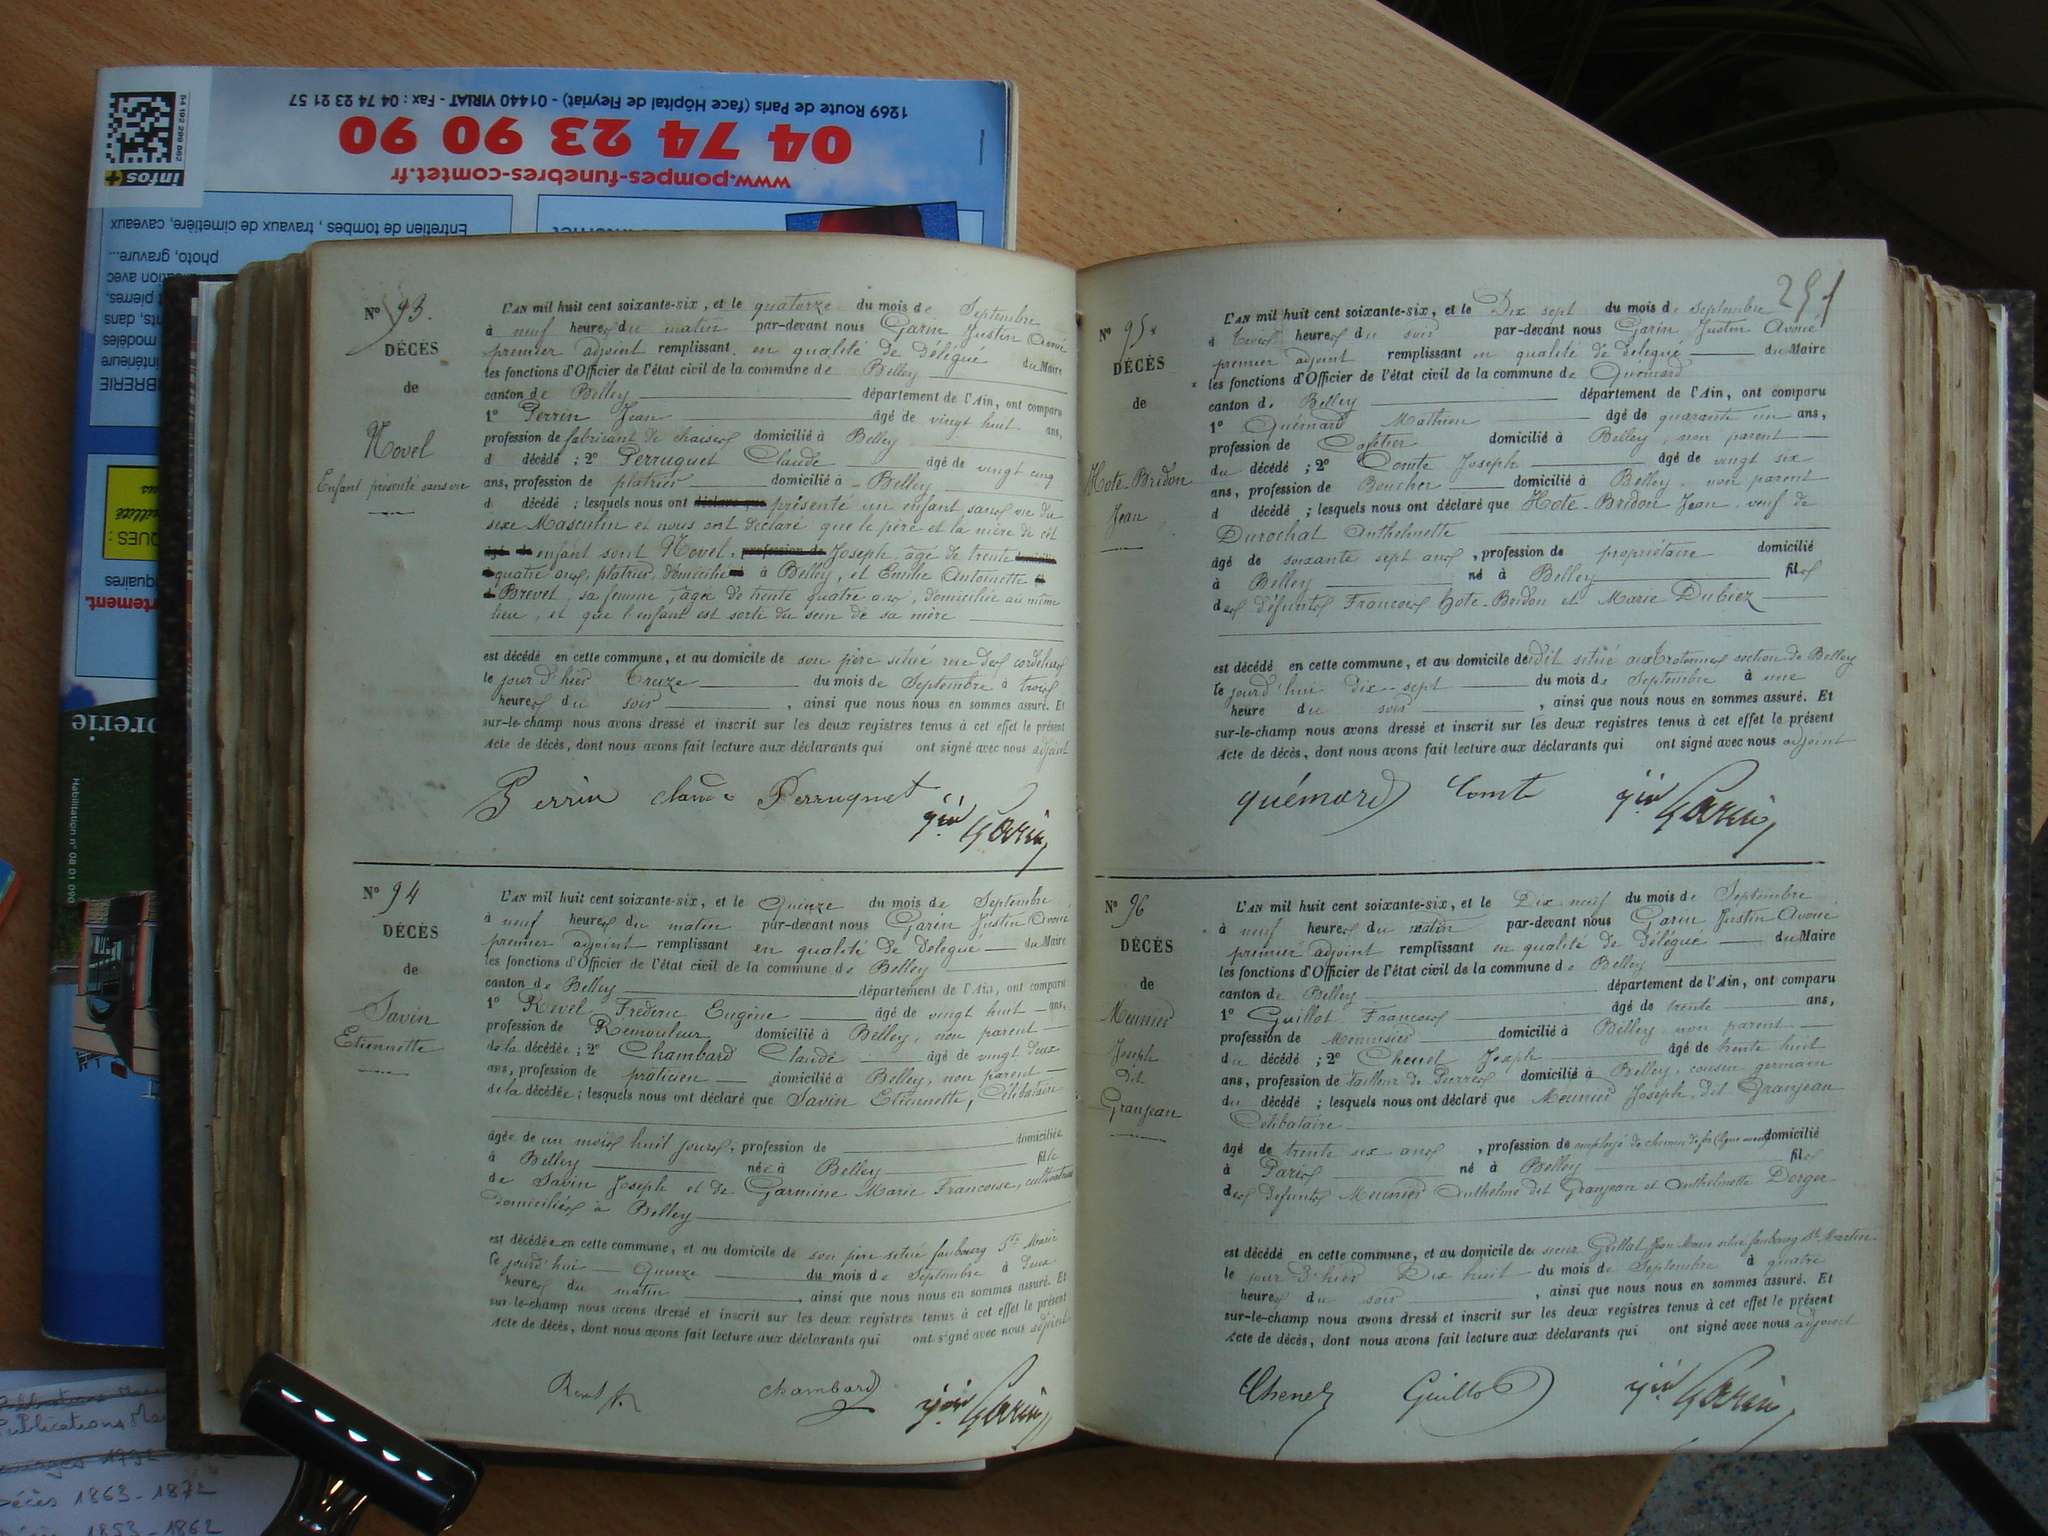 1269 Route de Paris (face Hôpital de Fleyriat) - 01440 VIRIAT - Fax : 04 74 23 21 57
04 74 23 90 90
www.pompes-funebres-comtet.fr
infos+
Entretien de tombes, travaux de cimetière, caveaux
photo, gravure...
Habilitation n° 08 01 090
N° 93.
DÉCÈS
de
Novel
Enfant présenté sans vie
L'AN mil huit cent soixante-six, et le quatorze du mois de Septembre
à neuf heures du matin par-devant nous Garin Justin Avoué
premier adjoint remplissant en qualité de délégué du Maire
les fonctions d'Officier de l'état civil de la commune de Belley
canton de Belley département de l'Ain, ont comparu
1° Perrin Jean âgé de vingt huit ans,
profession de fabricant de chaises domicilié à Belley
d décédé ; 2° Perruquet Claude âgé de vingt cinq
ans, profession de platrier domicilié à Belley
d décédé ; lesquels nous ont déclaré que présenté un enfant sans vie du
sexe Masculin et nous ont déclaré que le père et la mère de cet
âgé de enfant sont Novel, profession de Joseph, âgé de trente
quatre ans, platrier, domicilié à Belley, et Emilie Antoinette
Brevet, sa femme, âgée de trente quatre ans, domiciliée au même
lieu, et que l'enfant est sorti du sein de sa mère
est décédé en cette commune, et au domicile de son père situé rue des cordeliers
le jour d'hier Treize du mois de Septembre à trois
heures du soir, ainsi que nous nous en sommes assuré. Et
sur-le-champ nous avons dressé et inscrit sur les deux registres tenus à cet effet le présent
Acte de décès, dont nous avons fait lecture aux déclarants qui ont signé avec nous adjoint
Perrin Claude Perruquet Garin
N° 94
DÉCÈS
de
Savin
Etiennette
L'AN mil huit cent soixante-six, et le Quinze du mois de Septembre
à neuf heures du matin par-devant nous Garin Justin Avoué
premier adjoint remplissant en qualité de délégué du Maire
les fonctions d'Officier de l'état civil de la commune de Belley
canton de Belley département de l'Ain, ont comparu
1° Revel Frédéric Eugène âgé de vingt huit ans,
profession de Rémouleur domicilié à Belley, non parent
de la décédée ; 2° Chambard Claude âgé de vingt deux
ans, profession de praticien domicilié à Belley, non parent
de la décédée ; lesquels nous ont déclaré que Savin Etiennette, Célibataire
âgée de un mois huit jours, profession de domiciliée
à Belley née à Belley fille
de Savin Joseph et de Garmine Marie Francoise, cultivateurs
domiciliés à Belley
est décédée en cette commune, et au domicile de son père situé faubourg Ste Marie
le jourd'hui Quinze du mois de Septembre à deux
heures du matin, ainsi que nous nous en sommes assuré. Et
sur-le-champ nous avons dressé et inscrit sur les deux registres tenus à cet effet le présent
Acte de décès, dont nous avons fait lecture aux déclarants qui ont signé avec nous adjoint
Chambard Garin
251
N° 95
DÉCÈS
de
Hote-Bridon
Jean
L'AN mil huit cent soixante-six, et le Dix sept du mois de septembre
à trois heures du soir par-devant nous Garin Justin Avoué
premier adjoint remplissant en qualité de délégué du Maire
les fonctions d'Officier de l'état civil de la commune de Quémard
canton de Belley département de l'Ain, ont comparu
1° Quémard Mathieu âgé de quarante un ans,
profession de Cafetier domicilié à Belley, non parent
du décédé ; 2° Comte Joseph âgé de vingt six
ans, profession de Boucher domicilié à Belley, non parent
d décédé ; lesquels nous ont déclaré que Hote-Bridon Jean, veuf de
Durochat Anthelmette
âgé de soixante sept ans, profession de propriétaire domicilié
à Belley né à Belley fils
des défunts Francois Hote-Bridon et Marie Dubiez
est décédé en cette commune, et au domicile de dit situé aux section de Belley
le jourd'hui dix-sept du mois de Septembre à une
heure du soir, ainsi que nous nous en sommes assuré. Et
sur-le-champ nous avons dressé et inscrit sur les deux registres tenus à cet effet le présent
Acte de décès, dont nous avons fait lecture aux déclarants qui ont signé avec nous adjoint
Quémard Comte Garin
N° 96
DÉCÈS
de
Meunier
Joseph
dit
Granjean
L'AN mil huit cent soixante-six, et le Dix neuf du mois de Septembre
à neuf heures du matin par-devant nous Garin Justin Avoué
premier adjoint remplissant en qualité de délégué du Maire
les fonctions d'Officier de l'état civil de la commune de Belley
canton de Belley département de l'Ain, ont comparu
1° Guillot Francois âgé de trente ans,
profession de Menuisier domicilié à Belley, non parent
du décédé ; 2° Chenel Joseph âgé de trente huit
ans, profession de tailleur de Pierres domicilié à Belley, cousin germain
du décédé ; lesquels nous ont déclaré que Meunier Joseph, dit Granjean
Célibataire
âgé de trente six ans, profession de employé de chemin de fer domicilié
à Paris né à Belley fils
des défunts Meunier Anthelme dit Granjean et Anthelmette Dorgez
est décédé en cette commune, et au domicile du sieur Guillot situé faubourg St Martin
le jour d'hier Dix huit du mois de Septembre à quatre
heures du soir, ainsi que nous nous en sommes assuré. Et
sur-le-champ nous avons dressé et inscrit sur les deux registres tenus à cet effet le présent
Acte de décès, dont nous avons fait lecture aux déclarants qui ont signé avec nous adjoint
Chenel Guillot Garin
Publications
Décès 1863-1872
1853-1862